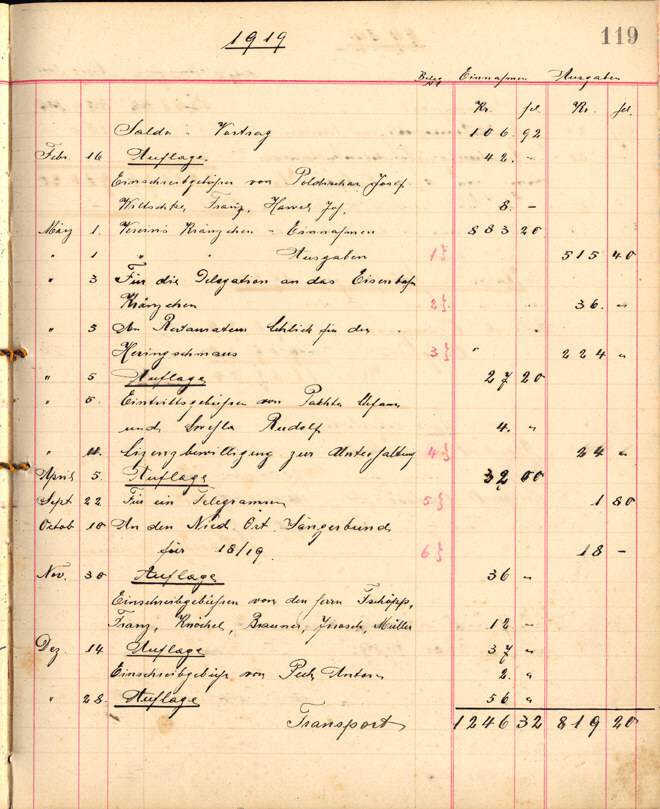 1919
119
Beleg Nr Einnahmen Ausgaben
Kr. fl. Kr. fl.
Saldo - Vortrag 106.92
Febr. 16 Auflage. 42. -
Einschreibgebühren von Josef
Franz, Jos. 8. -
März 1. Vereins Kränzchen - Einnahmen 883 20
" 1 " " Ausgaben 1} 515 40
" 3 Für die Delegation an das Eisenbahn
Kränzchen 2} 36. "
" 5 An Restaurateur Schlick für den
Heringschmaus 3} " 224 "
" 5 Auflage 27 20
" 6. Eintrittsgebühren von
und Rudolf 4. "
" 11. Lizenzbewilligung zur Unterhaltung 4} 24 "
April 5. Auflage 32 00
Sept. 22 Für ein Telegramm 5} 1 80
Octob 10 An den Nied. Öst. Sängerbund
für 18/19. 6} 18 -
Nov. 30 Auflage 36 "
Einschreibgebühren von den Herrn Tschöpp,
Franz, Knöchel, Brauner, Müller 12 -
Dez. 14 Auflage 37 "
Einschreibgebühr von Anton 2. "
" 28. Auflage 56 "
Transport 1246 32 819 20